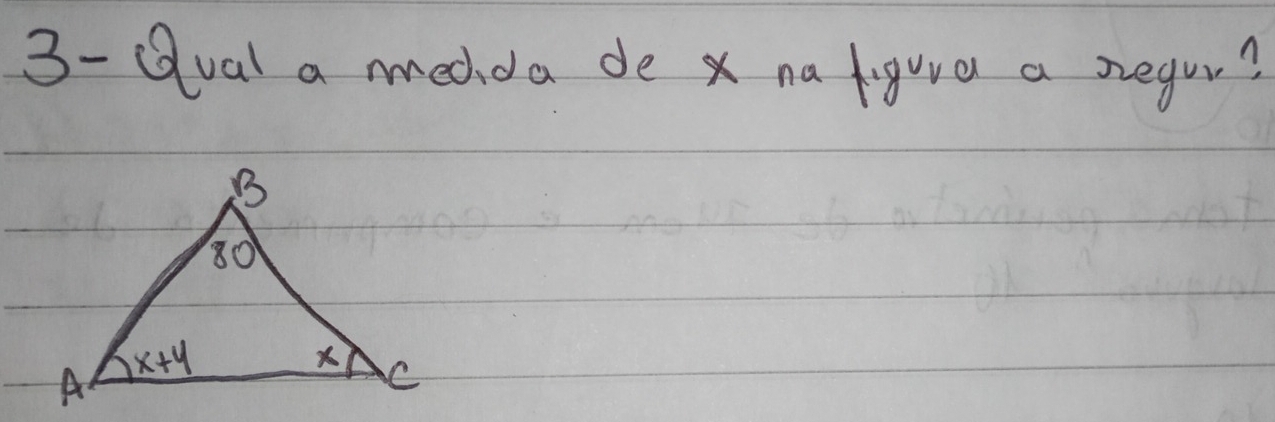 3- Qual a medida de x na figura a segur?
B
80
x+4
x
A
C